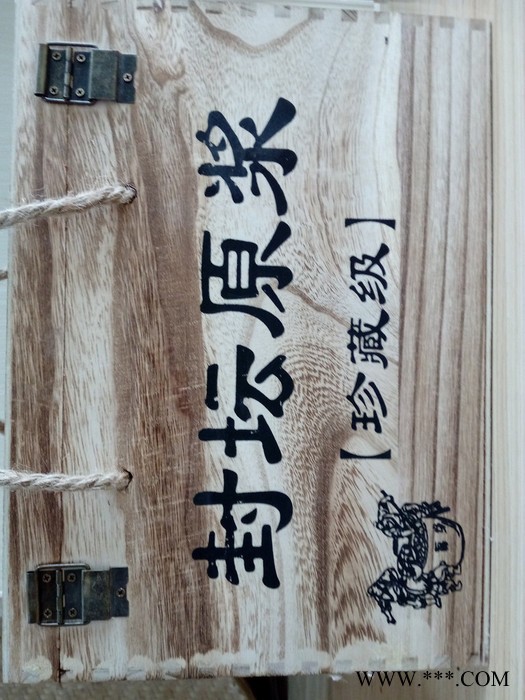 封坛原浆
【珍藏级】
WWW.***.COM